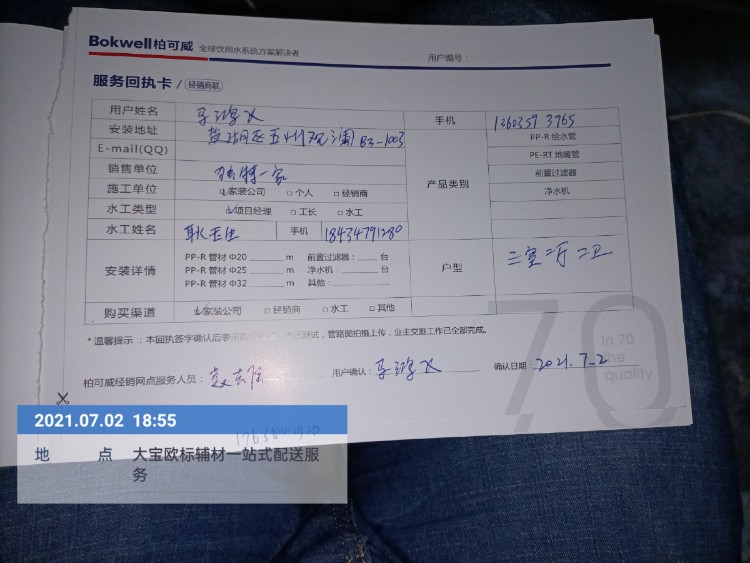 Bokwell柏可威 全球饮用水系统方案解决者
用户编号：
服务回执卡 / 经销商联
用户姓名 手机
安装地址 B3-1003 PP-R 给水管
E-mail(QQ) PE-RT 地暖管
销售单位 独特一家 产品类别 前置过滤器
施工单位 ☑家装公司 □个人 □经销商 净水机
水工类型 ☑项目经理 □工长 □水工
水工姓名 手机 18434791280
安装详情 户型 三室二厅二卫
PP-R 管材 Φ20 m 前置过滤器： 台
PP-R 管材 Φ25 m 净水机： 台
PP-R 管材 Φ32 m 其他：
购买渠道 ☑家装公司 □经销商 □水工 □其他
* 温馨提示：本回执签字确认后表示 测试，管路图拍摄上传，业主交底工作已全部完成。
70
In 70
the
quality
柏可威经销网点服务人员： 用户确认： 确认日期：2021.7.2
2021.07.02 18:55
地 点 大宝欧标辅材一站式配送服
务